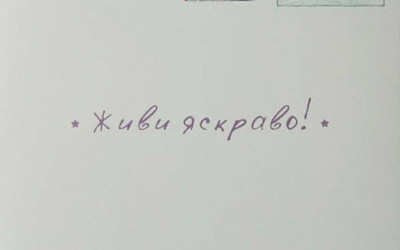 * Живи яскраво! *